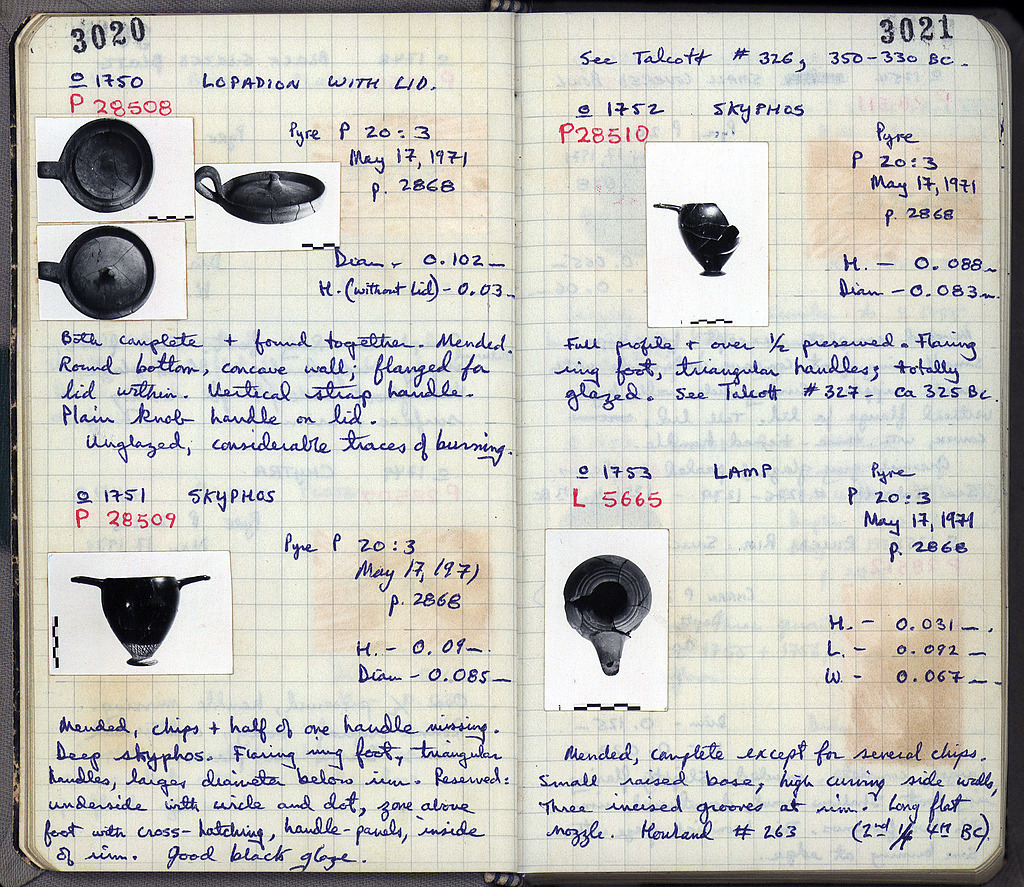 3020
o 1750 LOPADION WITH LID.
P 28508
Pyre P 20:3
May 17, 1971
p. 2868
Diam - 0.102 m
H. (without lid) - 0.03 m
Both complete + found together. Mended.
Round bottom, concave wall; flanged for
lid within. Vertical strap handle.
Plain knob handle on lid.
Unglazed, considerable traces of burning.
o 1751 SKYPHOS
P 28509
Pyre P 20:3
May 17, 1971
p. 2868
H. - 0.09 m.
Diam - 0.085 m
Mended, chips + half of one handle missing.
Deep skyphos. Flaring ring foot, triangular
handles, larger diameter below rim. Reserved:
underside with circle and dot, zone above
foot with cross-hatching, handle-panels, inside
of rim. Good black glaze.
3021
See Talcott # 326, 350-330 BC.
o 1752 SKYPHOS
P 28510
Pyre
P 20:3
May 17, 1971
p. 2868
H. - 0.088 m
Diam - 0.083 m.
Full profile + over 1/2 preserved. Flaring
ring foot, triangular handles; totally
glazed. See Talcott # 327 - ca 325 BC.
o 1753 LAMP
L 5665
Pyre
P 20:3
May 17, 1971
p. 2868
H. - 0.031 m.
L. - 0.092 m
W. - 0.067 m.
Mended, complete except for several chips.
Small raised base, high curving side walls,
Three incised grooves at rim. Long flat
nozzle. Howland # 263 (2nd 1/2 4th BC)